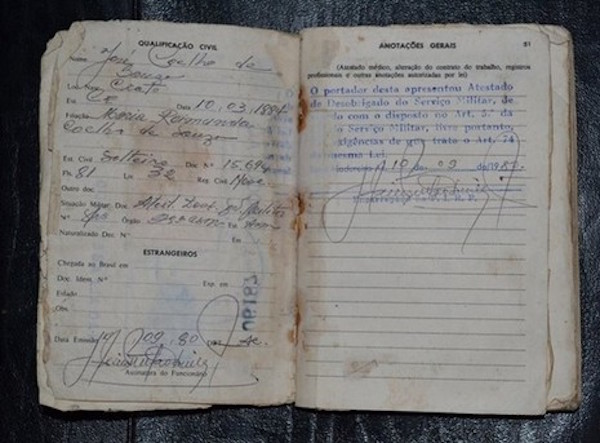 QUALIFICAÇÃO CIVIL
Nome José Coelho de
Souza
Loc. Nasc. Crato
Est. CE Data 10.03.1884
Filiação Maria Raimunda
Coelho de Souza
Est. Civil Solteiro Doc. Nº 15.694
Fls. 81 Liv. 32 Reg. Civil
Outro doc.
Situação Militar: Doc.
Nº Órgão Em
Naturalizado Dec. Nº Em
ESTRANGEIROS
Chegada ao Brasil em
Doc. Ident. Nº Exp. em
Estado
Obs.
Data Emissão 09.80
Assinatura do Funcionário
06187
ANOTAÇÕES GERAIS 51
(Atestado médico, alteração do contrato do trabalho, registros
profissionais e outras anotações autorizadas por lei)
O portador desta apresentou Atestado
de Desobrigado do Serviço Militar, de
do com o disposto no Art. 5.º da
o Serviço Militar, isso portanto,
xigências de que trata o Art. 74
mesma Lei.
10 de 09 de 19